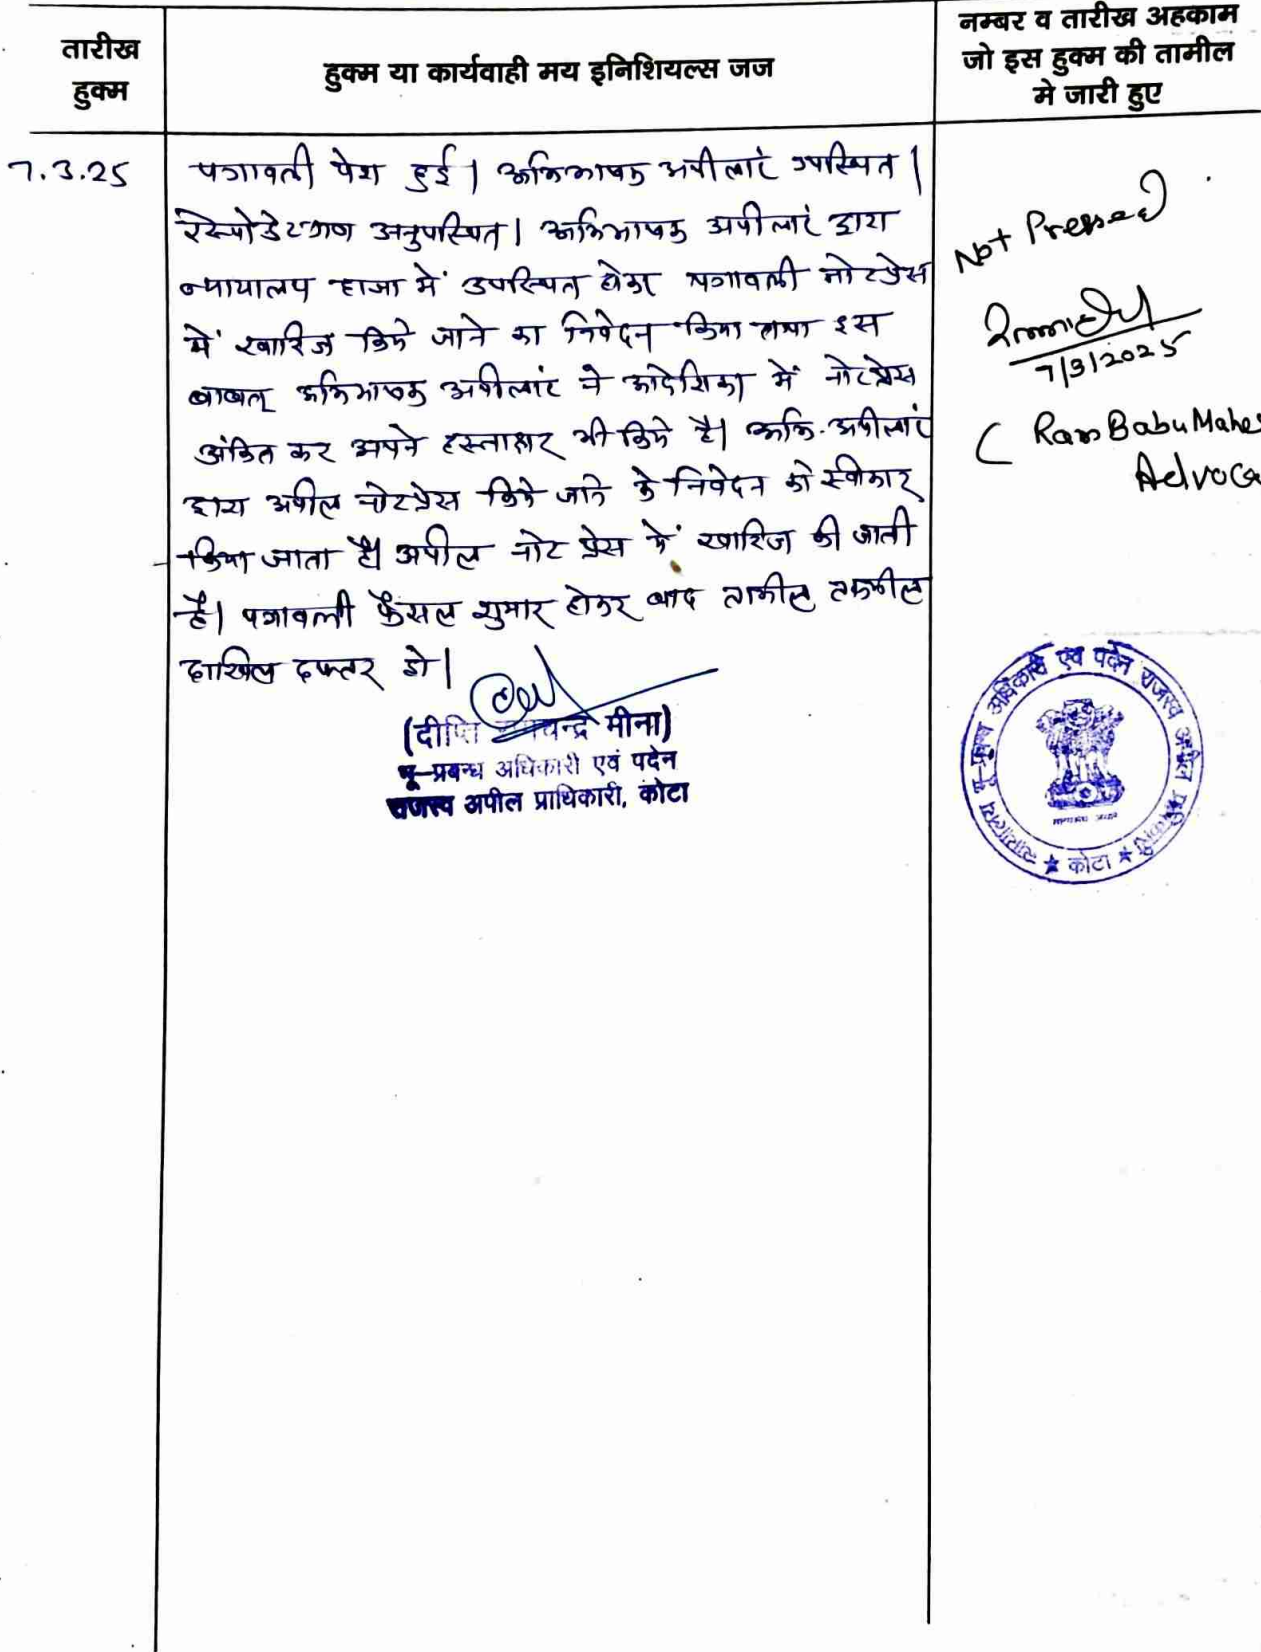 तारीख
हुक्म
हुक्म या कार्यवाही मय इनिशियल्स जज
नम्बर व तारीख अहकाम
जो इस हुक्म की तामील
मे जारी हुए
7.3.25
पत्रावली पेश हुई। अभिभाषक अपीलांट उपस्थित।
रेस्पोडेन्टगण अनुपस्थित। अभिभाषक अपीलांट द्वारा
न्यायालय हाजा में उपस्थित होकर पत्रावली नोटप्रेस
में खारिज किये जाने का निवेदन किया तथा इस
बाबत् अभिभाषक अपीलांट ने आदेशिका में नोटप्रेस
अंकित कर अपने हस्ताक्षर भी किये है। अभि. अपीलांट
द्वारा अपील नोटप्रेस किये जाने के निवेदन को स्वीकार
किया जाता है। अपील नोट प्रेस में खारिज की जाती
है। पत्रावली फैसल शुमार होकर बाद तामील तकमील
दाखिल दफ्तर हो।
(दीप्ति चन्द्र मीना)
भू-प्रबन्ध अधिकारी एवं पदेन
राजस्व अपील प्राधिकारी, कोटा
Not Pressed
7/3/2025
( Ram Babu Mahes
Advoca
न्यायालय भू-प्रबन्ध अधिकारी एवं पदेन राजस्व अपील प्राधिकारी
★ कोटा ★